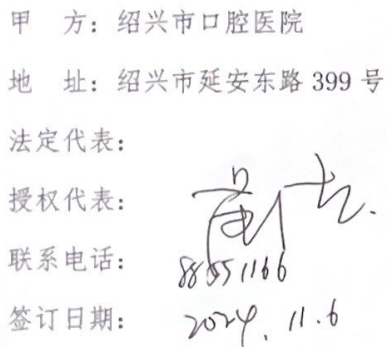 甲 方：绍兴市口腔医院
地 址：绍兴市延安东路 399 号
法定代表：
授权代表：
联系电话：88551166
签订日期：2024.11.6